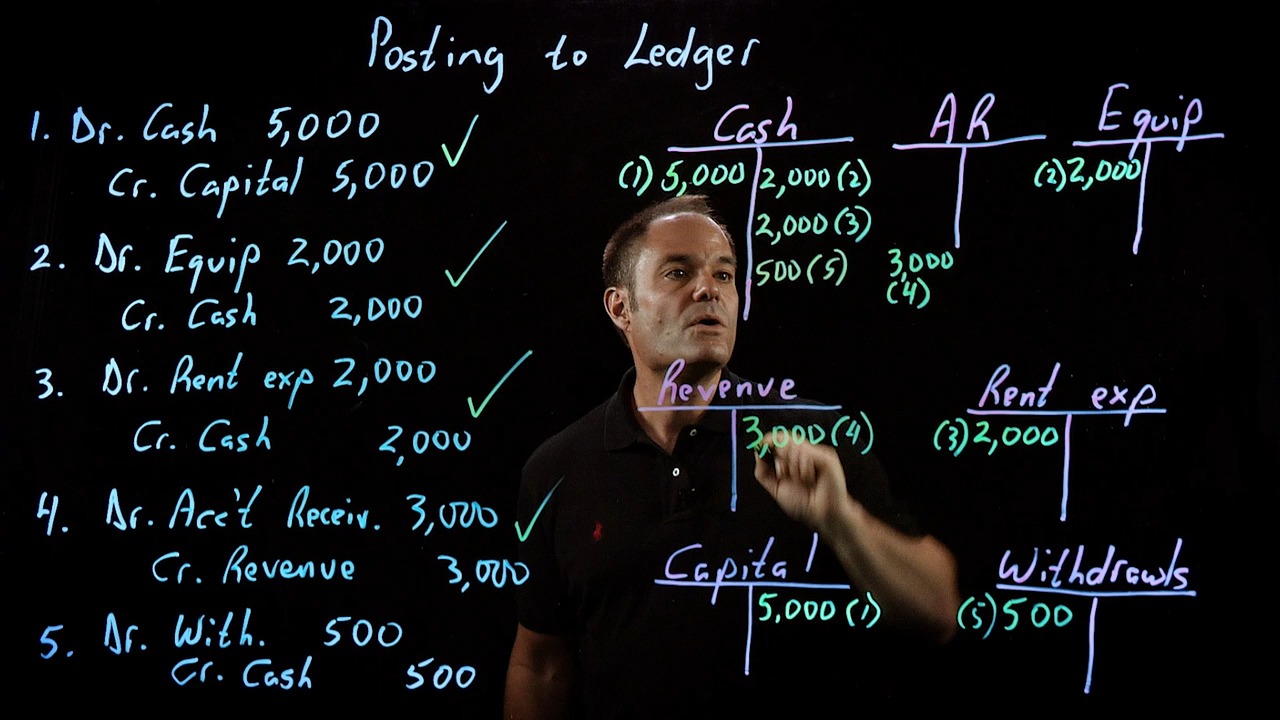 Posting to Ledger
1. Dr. Cash 5,000
Cr. Capital 5,000
2. Dr. Equip 2,000
Cr. Cash 2,000
3. Dr. Rent exp 2,000
Cr. Cash 2,000
4. Dr. Acc't Receiv. 3,000
Cr. Revenue 3,000
5. Dr. With. 500
Cr. Cash 500
Cash
(1) 5,000 2,000 (2)
2,000 (3)
500 (5)
AR
3,000
(4)
Equip
(2) 2,000
Revenue
3,000 (4)
Rent exp
(3) 2,000
Capital
5,000 (1)
Withdrawls
(5) 500